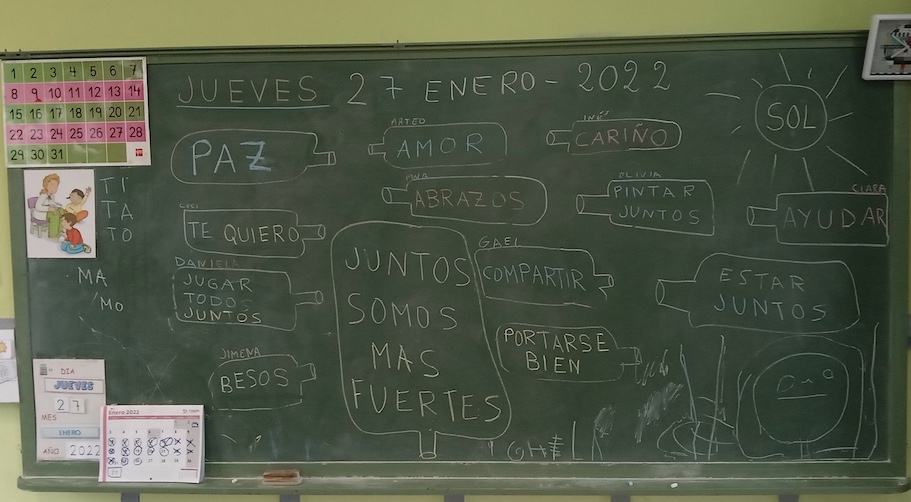 1 2 3 4 5 6 7
8 9 10 11 12 13 14
15 16 17 18 19 20 21
22 23 24 25 26 27 28
29 30 31
JUEVES 27 ENERO - 2022
SOL
PAZ
ARTEO
AMOR
INÉS
CARIÑO
ANA
ABRAZOS
OLIVIA
PINTAR
JUNTOS
CLARA
AYUDAR
TI
TA
TO
MA
MO
CECI
TE QUIERO
DANIELA
JUGAR
TODOS
JUNTOS
JUNTOS
SOMOS
MAS
FUERTES
GAEL
COMPARTIR
ESTAR
JUNTOS
JIMENA
BESOS
PORTARSE
BIEN
DIA
JUEVES
27
MES
ENERO
AÑO 2022
Enero 2022